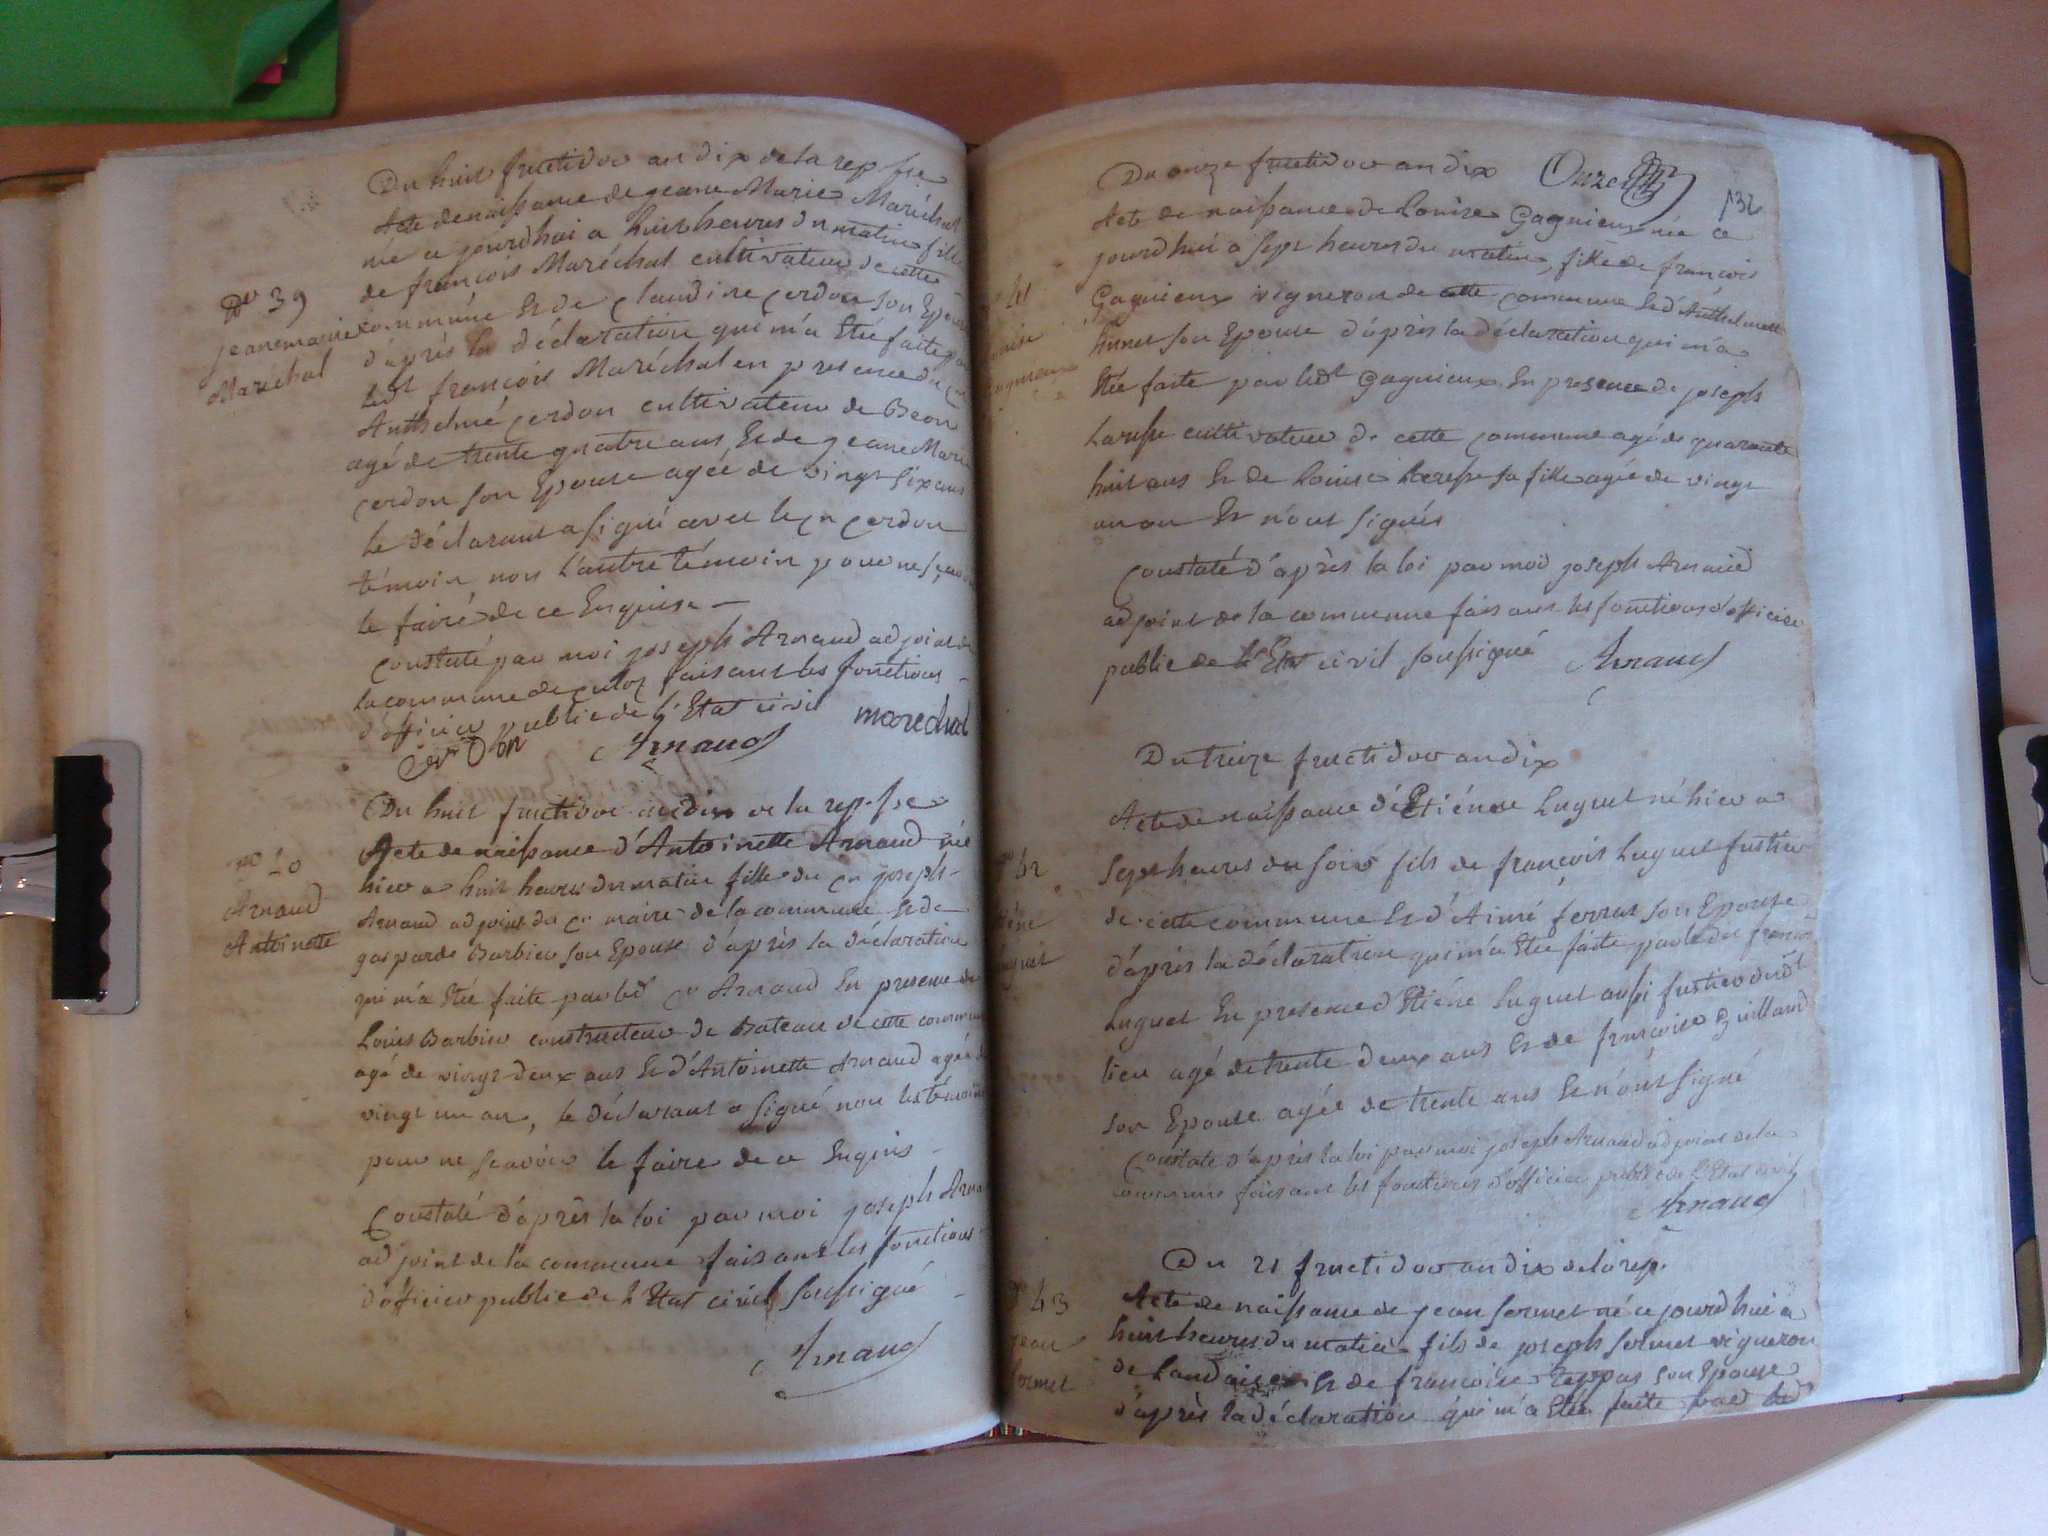 Du huit fructidor an dix de la rep fse
Acte de naissance de jeane Marie Maréchal
née ce jourdhui a huit heures du matin fille
de françois Maréchal cultivateur de cette
No 39
jeanemarie
Maréchal
commune Et de Claudine Cerdon son Epouse
d'après la déclaration qui m'a Etée faite par
led françois Maréchal en presence du Cn
Anthelme Cerdon cultivateur de Beon
agé de trente quatre ans Et de jeane Marie
Cerdon son Epouse agée de vingt six ans
le déclarant a signé avec le Cn Cerdon
témoin non l'autre témoin pour ne sçavoir
le faire de ce Enquise
Constaté par moi joseph Arnaud adjoint de
la commune de Culoz faisant les fonctions
d'officier public de l'Etat civil marechal
Cerdon Arnaud
Du huit fructidor an dix de la rep. fse
No 40
Arnaud
Antoinette
Acte de naissance d'Antoinette Arnaud née
hier a huit heures du matin fille du Cn joseph
Arnaud adjoint du Cn maire de la commune Et de
gasparde Barbier son Epouse d'après la déclaration
qui m'a Etée faite par led Cn Arnaud En presence de
Louis Barbier constructeur de Bateau de cette commune
agé de vingt deux ans Et d'Antoinette Arnaud agée de
vingt un an, le déclarant a signé non les témoins
pour ne sçavoir le faire de ce Enquis
Constaté d'après la loi par moi joseph Arnaud
adjoint de la commune faisant les fonctions
d'officier public de l'Etat civil soussigné
Arnaud
Du onze fructidor an dix Onze
132
Acte de naissance de Louise Gagnieux née ce
jourdhui a sept heures du matin, fille de françois
41
Gagnieux vigneron de cette commune Et d'Anthelmette
son Epouse d'après la déclaration qui m'a
Etée faite par ledt Gagnieux En presence de joseph
Larusse cultivateur de cette commune agé de quarante
huit ans Et de Louise Larusse sa fille agée de vingt
un an Et n'ont signés
Constaté d'après la loi par moi joseph Arnaud
adjoint de la commune faisant les fonctions d'officier
public de l'Etat civil soussigné Arnaud
Du treize fructidor an dix
Acte de naissance d'Etiéne Luguet né hier a
No 42
sept heures du soir fils de françois Luguet fustier
de cette commune Et d'Aimé ferrus son Epouse
d'après la déclaration qui m'a Etée faite par le du françois
Luguet En presence d'Etiéne Luguet aussi fustier dudt
lieu agé de trente deux ans Et de françoise Guillaud
son Epouse agée de trente ans Et n'ont signé
Constaté d'après la loi par moi joseph Arnaud adjoint de la
commune faisant les fonctions d'officier public de l'Etat civil
Arnaud
Du 21 fructidor an dix de la rep.
No 43
jean
sermet
Acte de naissance de jean sermet né ce jourdhui a
huit heures du matin fils de joseph sermet vigneron
de Landaise Et de françoise son Epouse
d'après la déclaration qui m'a Etée faite par led